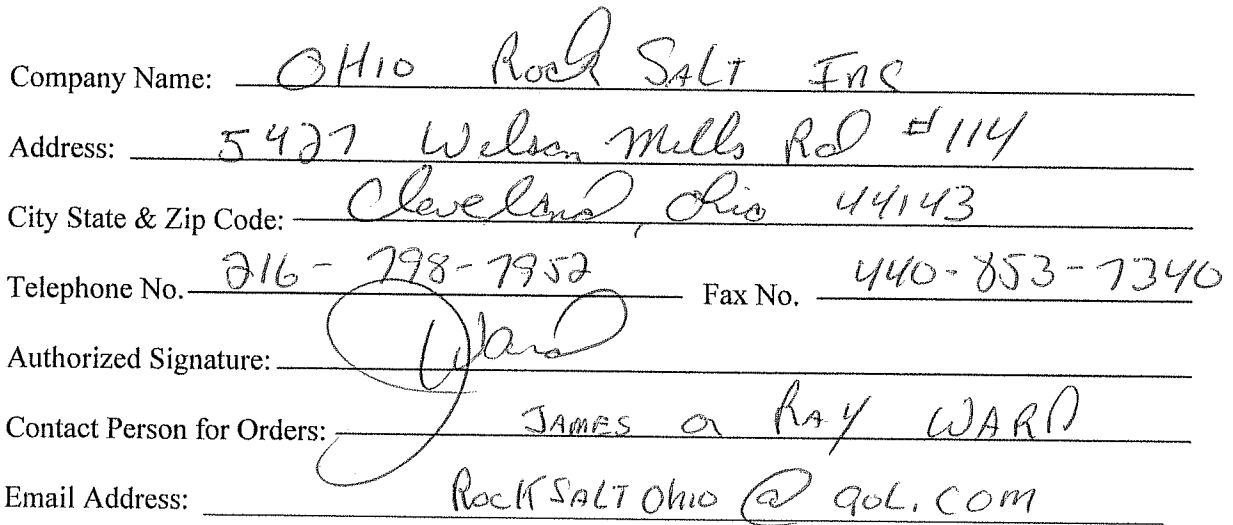 Company Name: OHIO Rock SALT Inc
Address: 5427 Wilson Mills Rd #114
City State & Zip Code: Cleveland, Ohio 44143
Telephone No. 216-798-7952 Fax No. 440-853-7340
Authorized Signature: Ward
Contact Person for Orders: JAMES or RAY WARD
Email Address: ROCKSALTOhio@aol.com